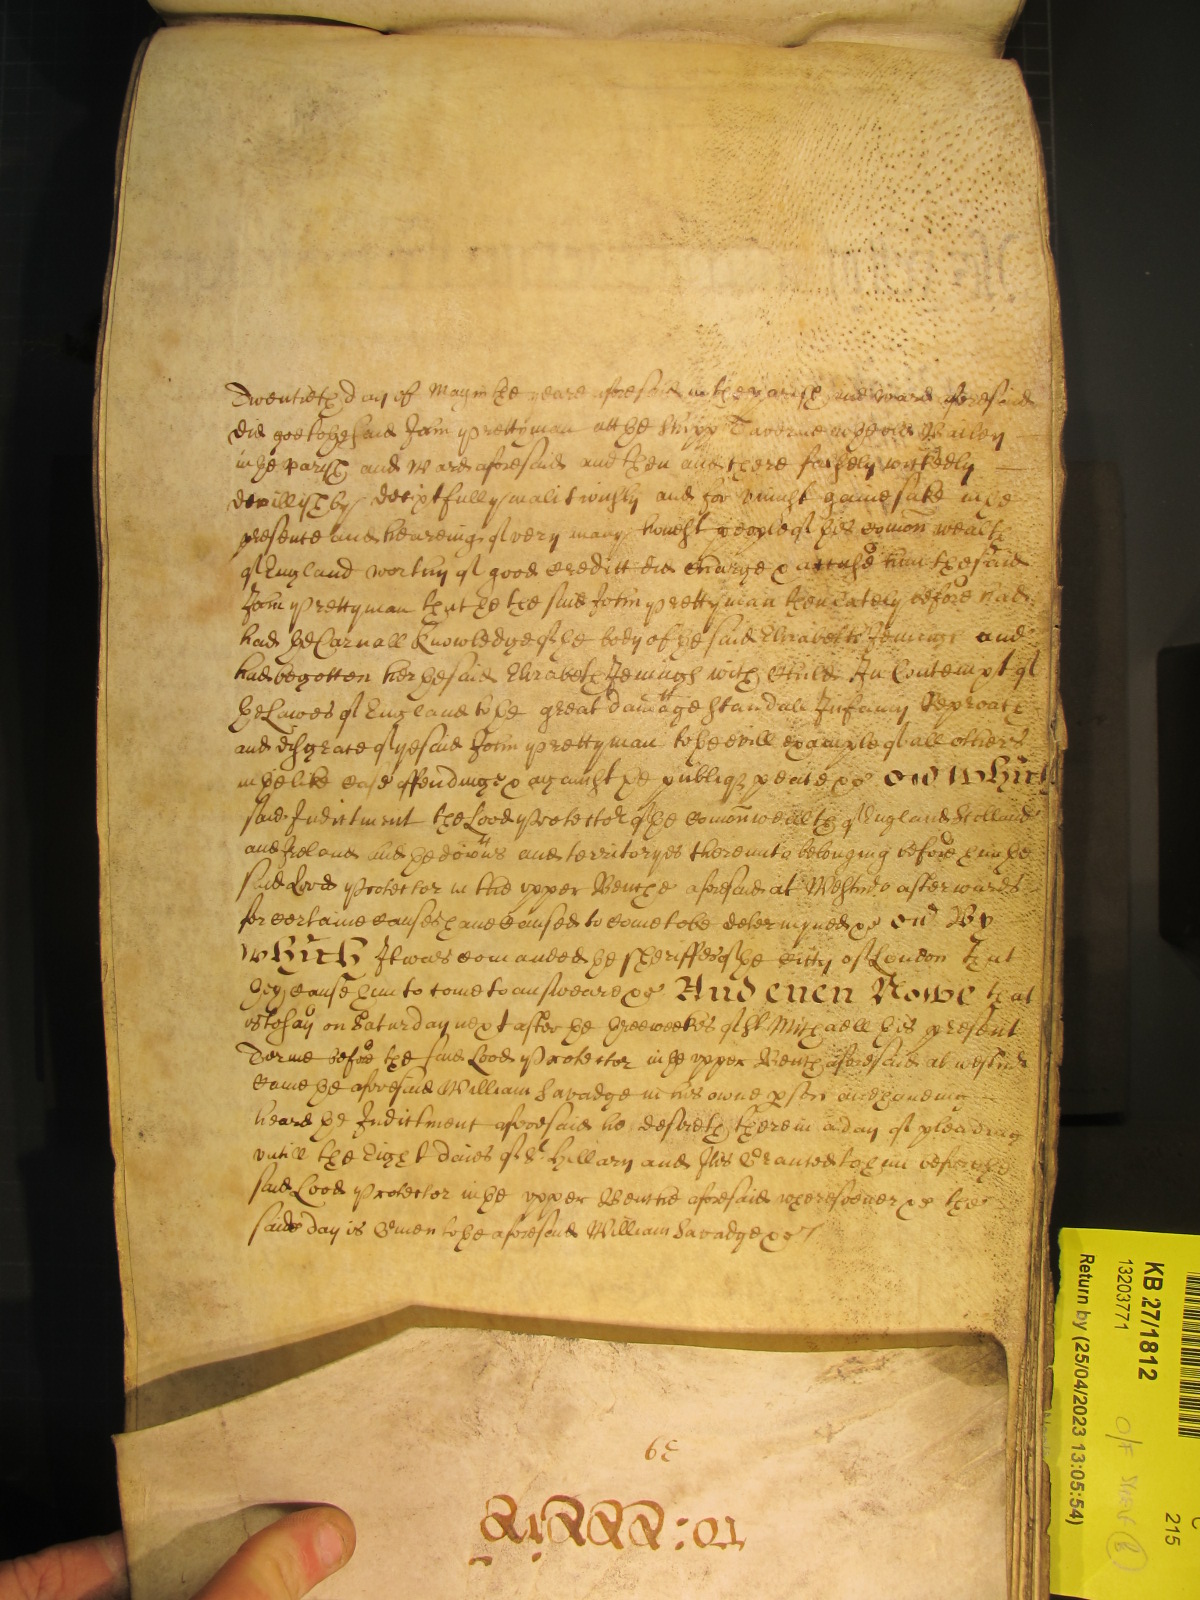 Twentieth day of May in the yeare aforesaid in the parish and ward aforesaid
did goe to the said John Prettyman att the Shipp Taverne in the old Bailey
in the parish and Ward aforesaid and then and there falsely wickedly
devillishly deceiptfully malitiously and for gaine sake in the
presence and heareing of very many honest people of this comon wealth
of England worthy of good creditt did charge & accuse him the said
John Prettyman that he the said John Prettyman then lately before had
had the Carnall knowledge of the body of the said Elizabeth Jenings and
had begotten her the said Elizabeth Jenings with Child In Contempt of
the Lawes of England to the great damage Scandall Infamy Reproach
and disgrace of ye said John Prettyman to the evill example of all others
in the like case offending & against the publiq peace &c which
said Indictment the Lord Protector of the comon wealth of England Scotland
and Ireland and the and territoryes thereunto belonging before him the
said Lord Protector in the upper Bench aforesaid at Westmr afterwards
for certaine causes hand caused to come to be determyned &c And By
which It was comanded the sheriffes of the Citty of London that
they cause him to come to answeare &c And even Nowe that
is to say on Saturday next after the three weekes of St Michaell this present
Terme before the said Lord Protector in the upper Bench aforesaid at westmr
came the aforesaid William Savadge in his owne pson and haveing
heard the Indictment aforesaid he desireth therein a day of pleading
untill the Eight daies of St Hillary and Itis Graunted to him before the
said Lord Protector in the upper Benche aforesaid wheresoever &c the
saide day is Given to the aforesaid William Savadge &c
39
KB 27/1812
13203771
Return by (25/04/2023 13:05:54)
215
O/F